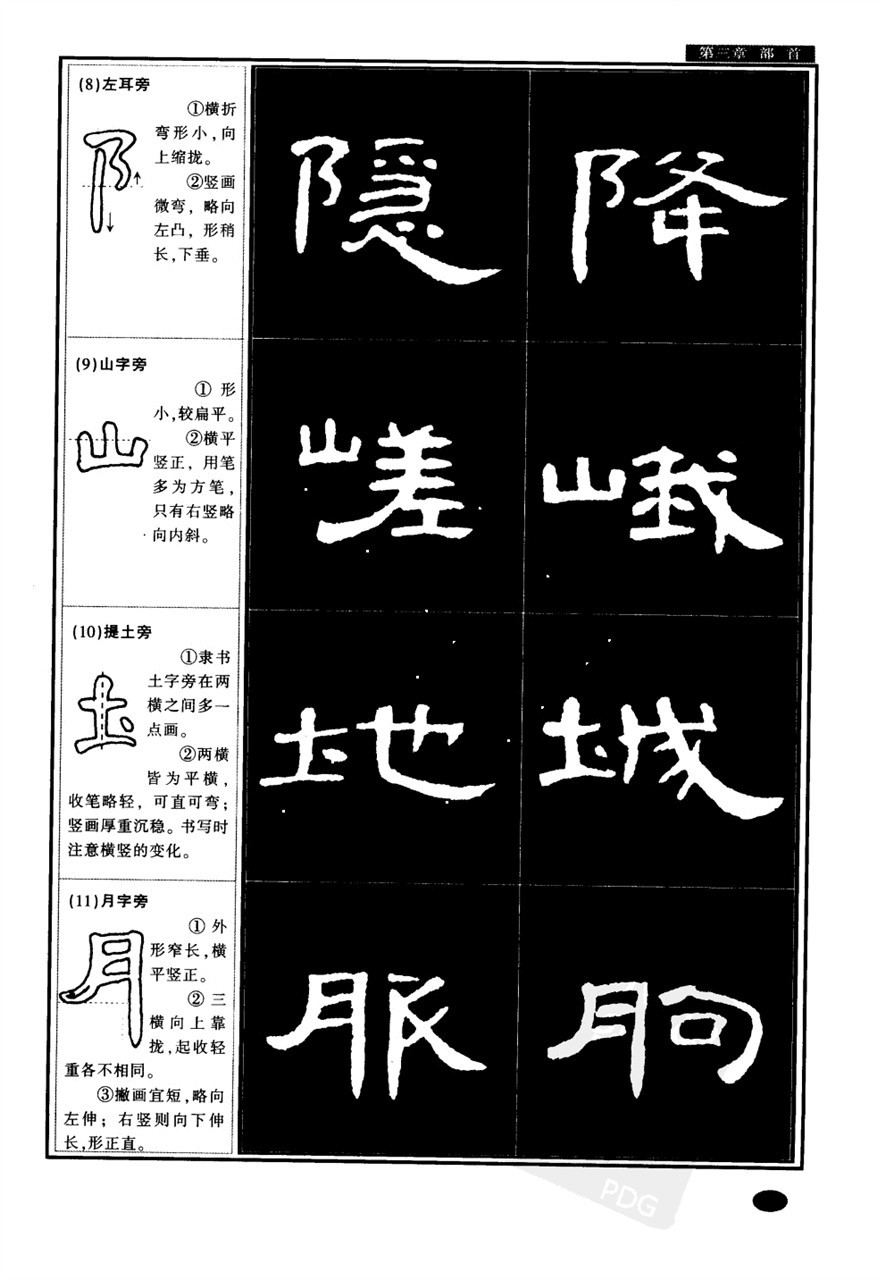 第三章 部 首
(8)左耳旁
①横折
弯形小,向
上缩拢。
②竖画
微弯, 略向
左凸, 形稍
长,下垂。
阝
隐 降
(9)山字旁
① 形
小,较扁平。
②横平
竖正, 用笔
多为方笔,
只有右竖略
向内斜。
山
嵯 峨
(10)提土旁
①隶书
土字旁在两
横之间多一
点画。
②两横
皆为平横,
收笔略轻, 可直可弯;
竖画厚重沉稳。书写时
注意横竖的变化。
土
地 城
(11)月字旁
① 外
形窄长,横
平竖正。
② 三
横向上靠
拢,起收轻
重各不相同。
③撇画宜短,略向
左伸; 右竖则向下伸
长,形正直。
月
服
PDG